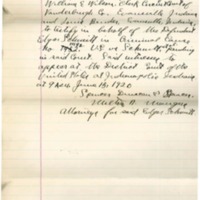 William E. Wilson, Clerk Circuit Court of
Vanderburgh Co. Evansville Indiana
and Louis Bender Evansville Indiana,
to testify in behalf of the Defendant
Edgar Schmitt in Criminal Cause
No. US vs Schmitt, Pending
in said Court. Said witnesses to
appear at the District Court of the
United States at Indianapolis Indiana
at 9 A.M. June 14, 1920
Spencer Duncan
Attorneys for said Edgar Schmitt